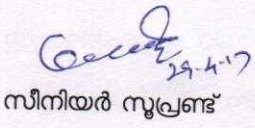 29-4-17
സീനിയർ സൂപ്രണ്ട്